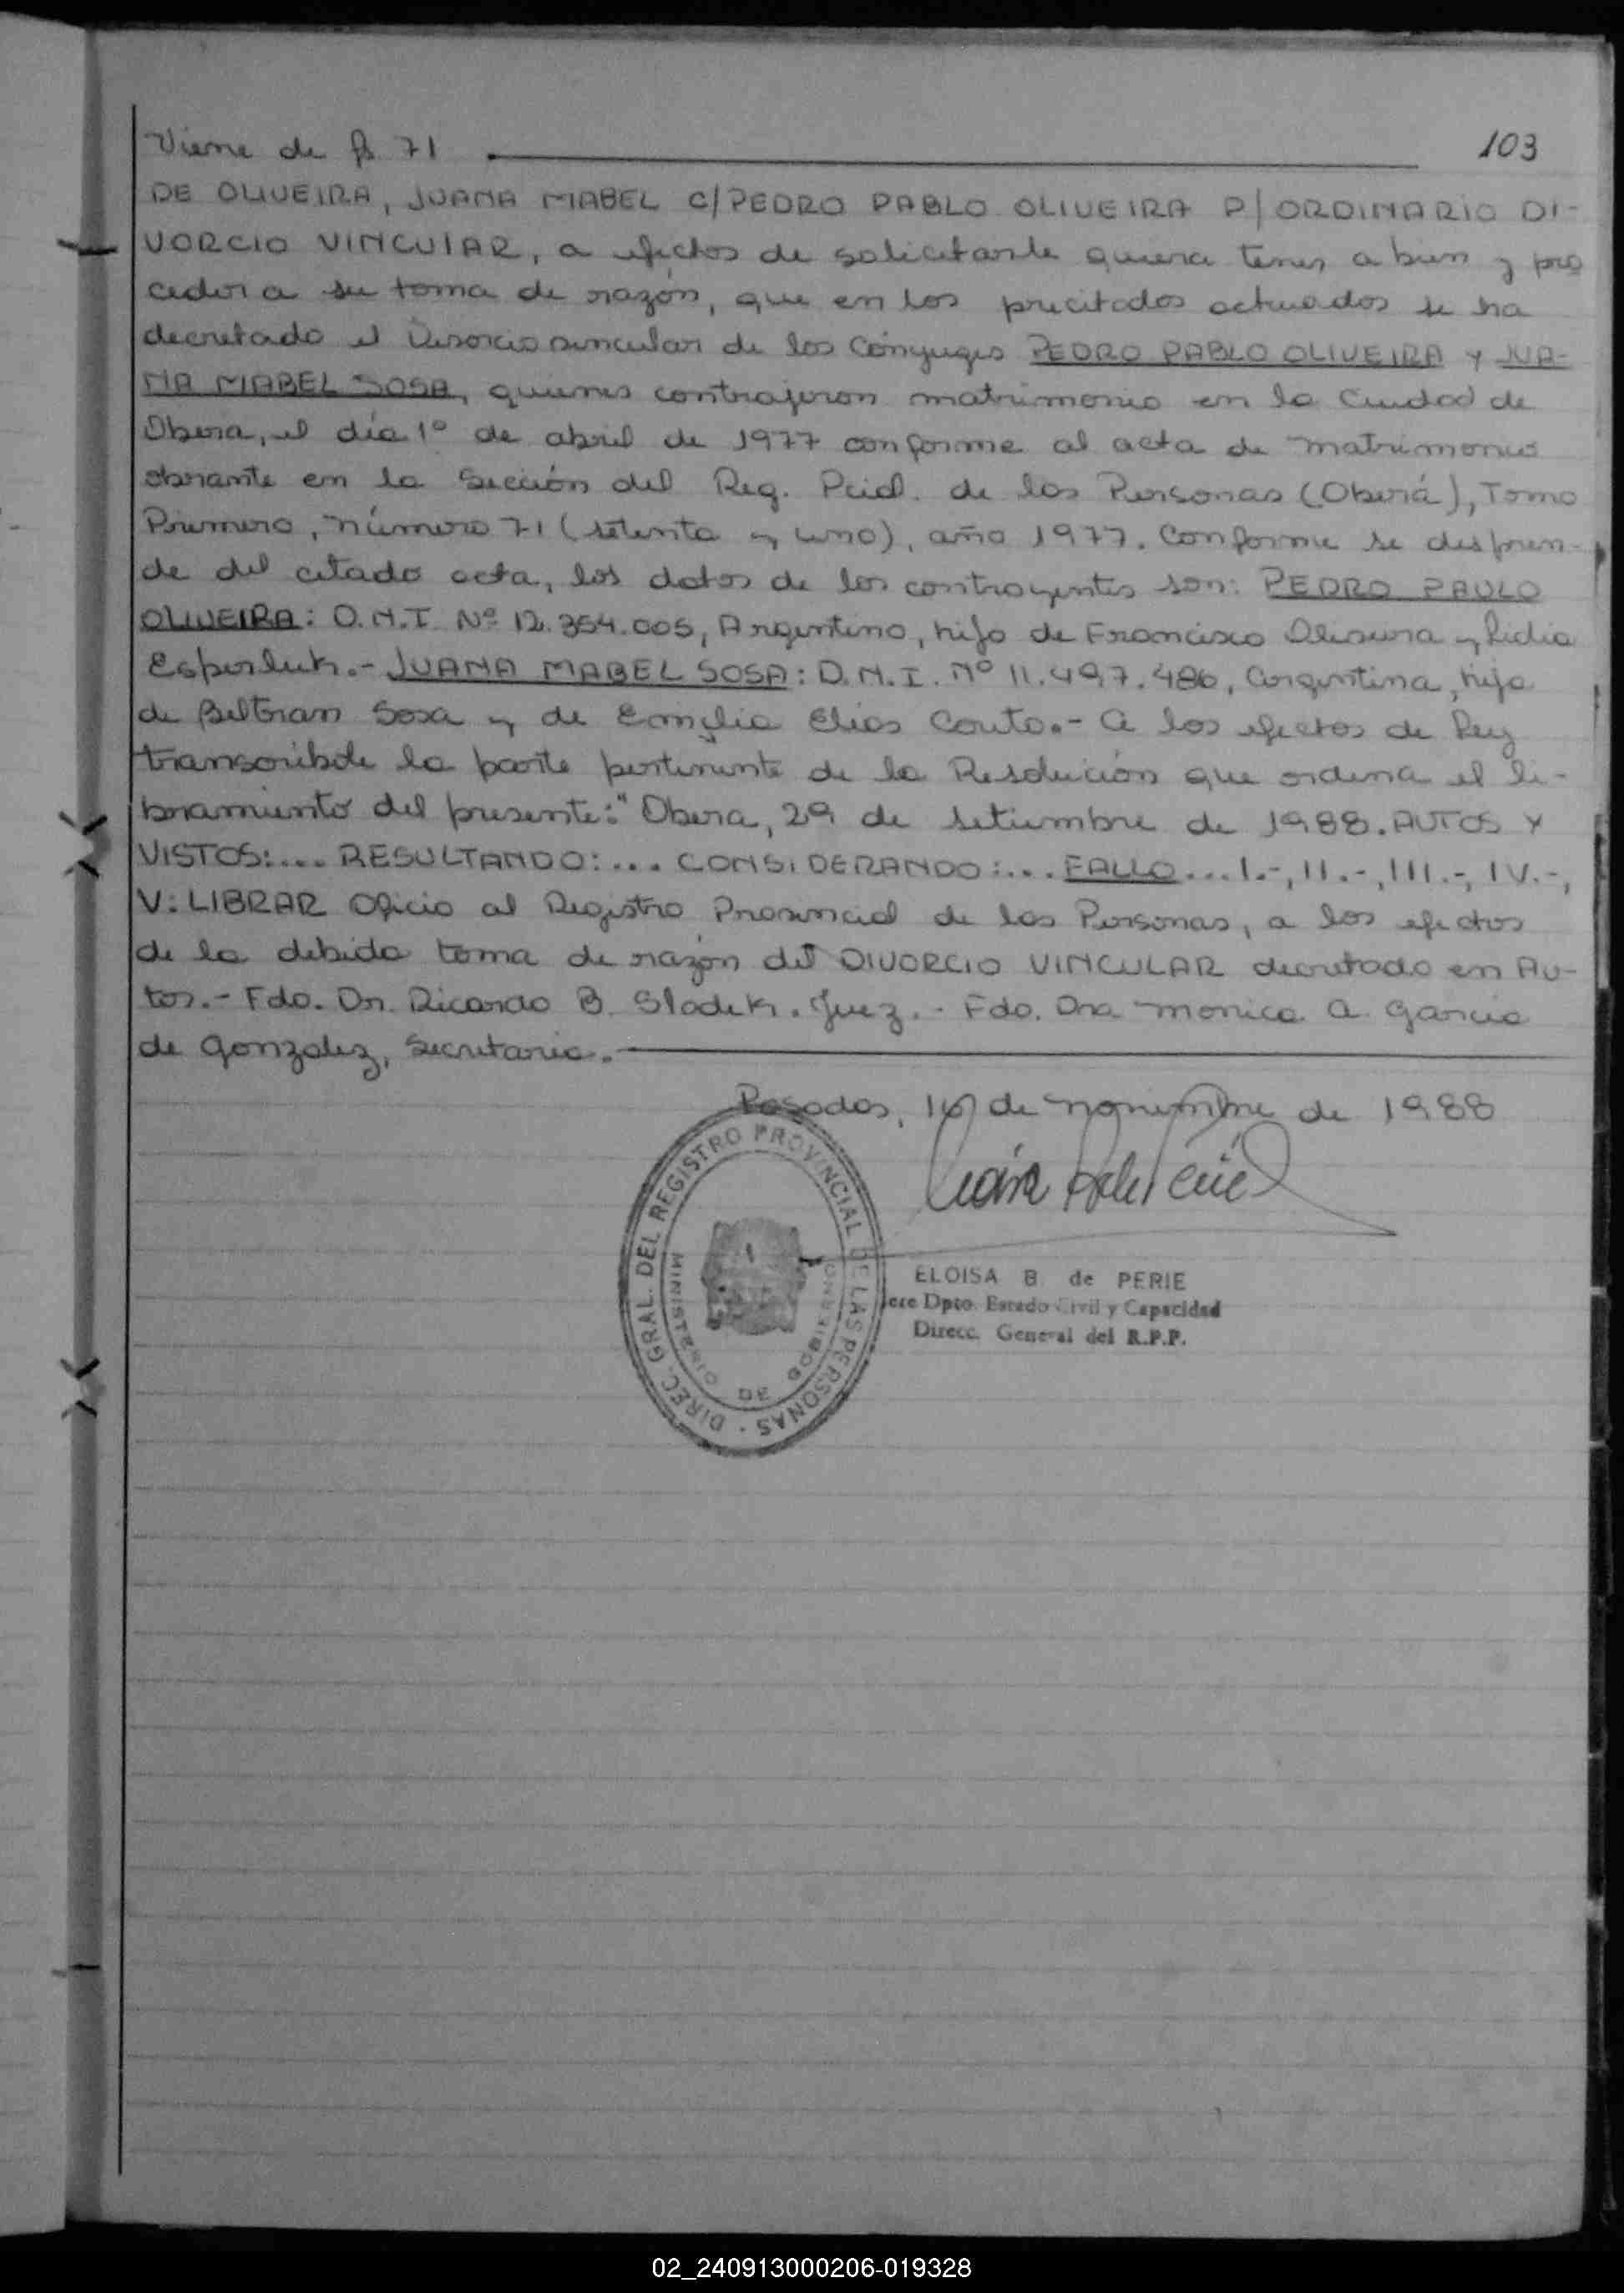 Viene de fs 71
103
DE OLIVEIRA, JUANA MABEL C/PEDRO PABLO OLIVEIRA P/ORDINARIO DI-
VORCIO VINCULAR, a efectos de solicitarle quiera tener a bien y pro
ceder a su toma de razón, que en los precitados actuados se ha
decretado el Divorcio vincular de los Cónyuges PEDRO PABLO OLIVEIRA Y JUA-
NA MABEL SOSA, quienes contrajeron matrimonio en la Ciudad de
Obera, el día 1º de abril de 1977 conforme al acta de matrimonio
obrante en la Sección del Reg. Pcial. de las Personas (Oberá), Tomo
Primero, número 71 (setenta y uno), año 1977. Conforme se despren-
de del citado acta, los datos de los contrayentes son: PEDRO PAULO
OLIVEIRA: D.N.I Nº 12.354.005, Argentino, hijo de Francisco Oliveira y Lidia
Esperluk.- JUANA MABEL SOSA: D.N.I. Nº 11.497.486, Argentina, hija
de Beltran Sosa y de Emilia Elias Couto.- A los efectos de Ley
transcribole la parte pertinente de la Resolución que ordena el li-
bramiento del presente: "Obera, 29 de setiembre de 1988. AUTOS Y
VISTOS:... RESULTANDO:... CONSIDERANDO:... FALLO... I.-, II.-, III.-, IV.-,
V: LIBRAR Oficio al Registro Provincial de las Personas, a los efectos
de la debida toma de razón del DIVORCIO VINCULAR decretado en Au-
tos.- Fdo. Dr. Ricardo B. Sladek. Juez.- Fdo. Dra Monica A. Garcia
de Gonzalez, Secretaria.
Posadas, 16 de noviembre de 1988
DIREC. GRAL. DEL REGISTRO PROVINCIAL DE LAS PERSONAS
MINISTERIO DE GOBIERNO
ELOISA B. de PERIE
Jefe Dpto. Estado Civil y Capacidad
Direcc. General del R.P.P.
02_240913000206-019328